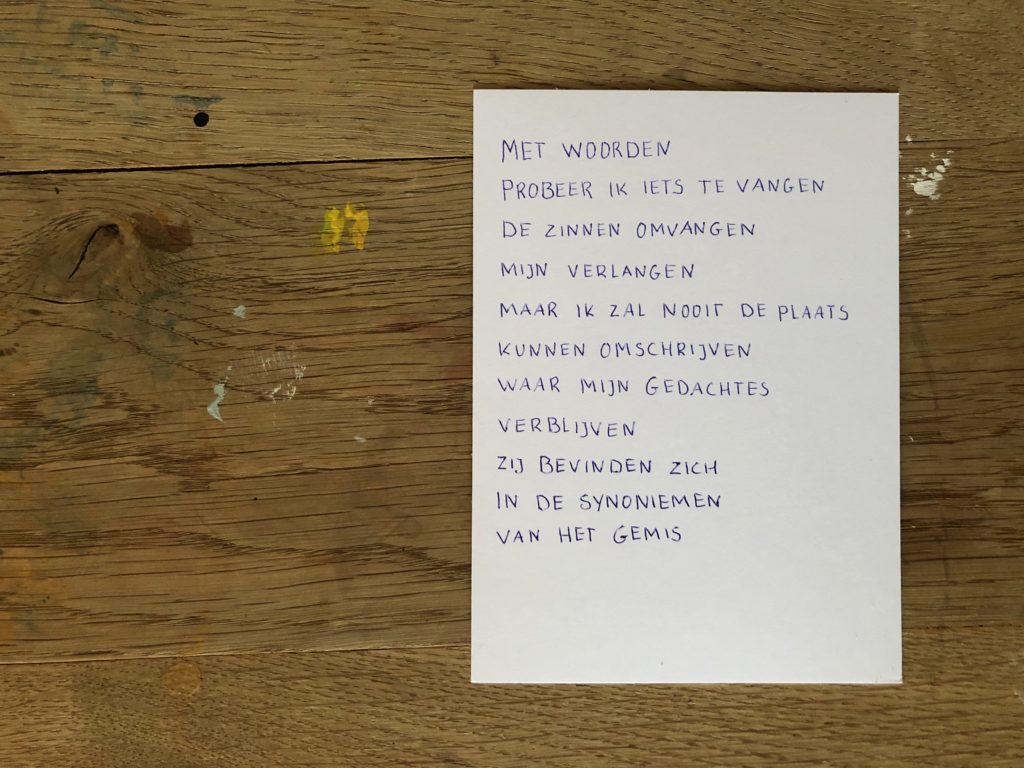 MET WOORDEN
PROBEER IK IETS TE VANGEN
DE ZINNEN OMVANGEN
MIJN VERLANGEN
MAAR IK ZAL NOOIT DE PLAATS
KUNNEN OMSCHRIJVEN
WAAR MIJN GEDACHTES
VERBLIJVEN
ZIJ BEVINDEN ZICH
IN DE SYNONIEMEN
VAN HET GEMIS